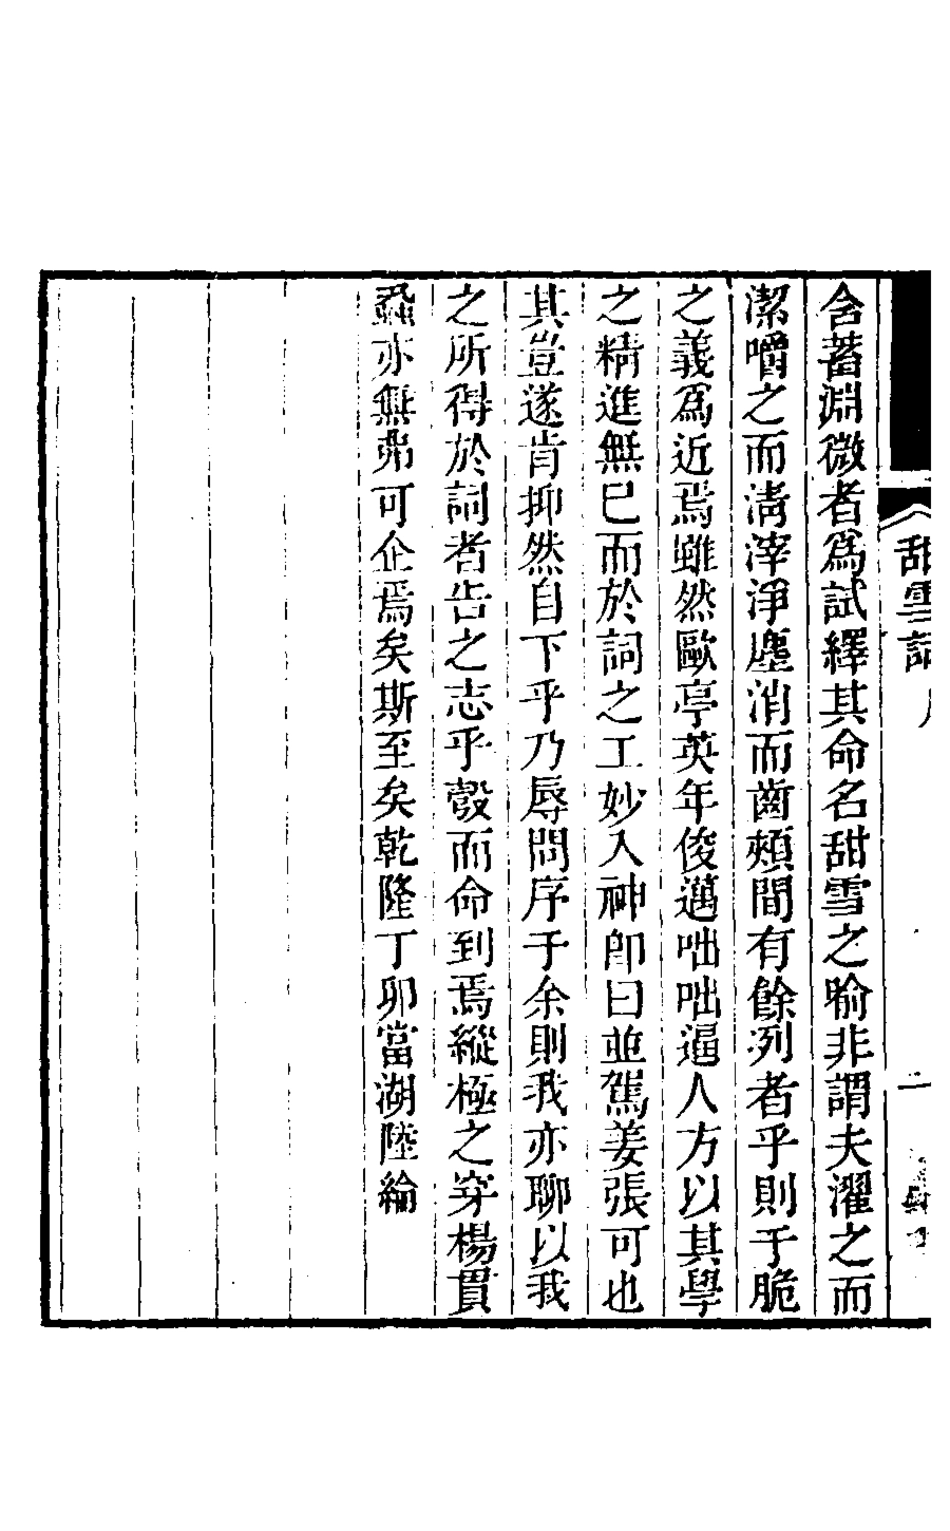 甜雪詞
二
含蓄淵微者爲試繹其命名甜雪之喻非謂夫濯之而
潔嚼之而淸滓淨塵消而齒頰間有餘冽者乎則于脆
之義爲近焉雖然歐亭英年俊邁咄咄逼人方以其學
之精進無已而於詞之工妙入神卽曰並駕姜張可也
其豈遂肯抑然自下乎乃辱問序于余則我亦聊以我
之所得於詞者告之志乎彀而命到焉縱極之穿楊貫
蝨亦無弗可企焉矣斯至矣乾隆丁卯當湖陸綸